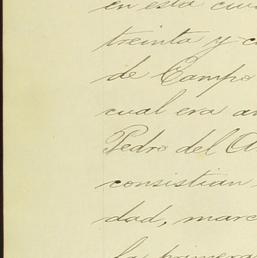 en esta ciu
treinta y c
de Campo
cual era a
Pedro del A
consistian
dad, marc
la primera